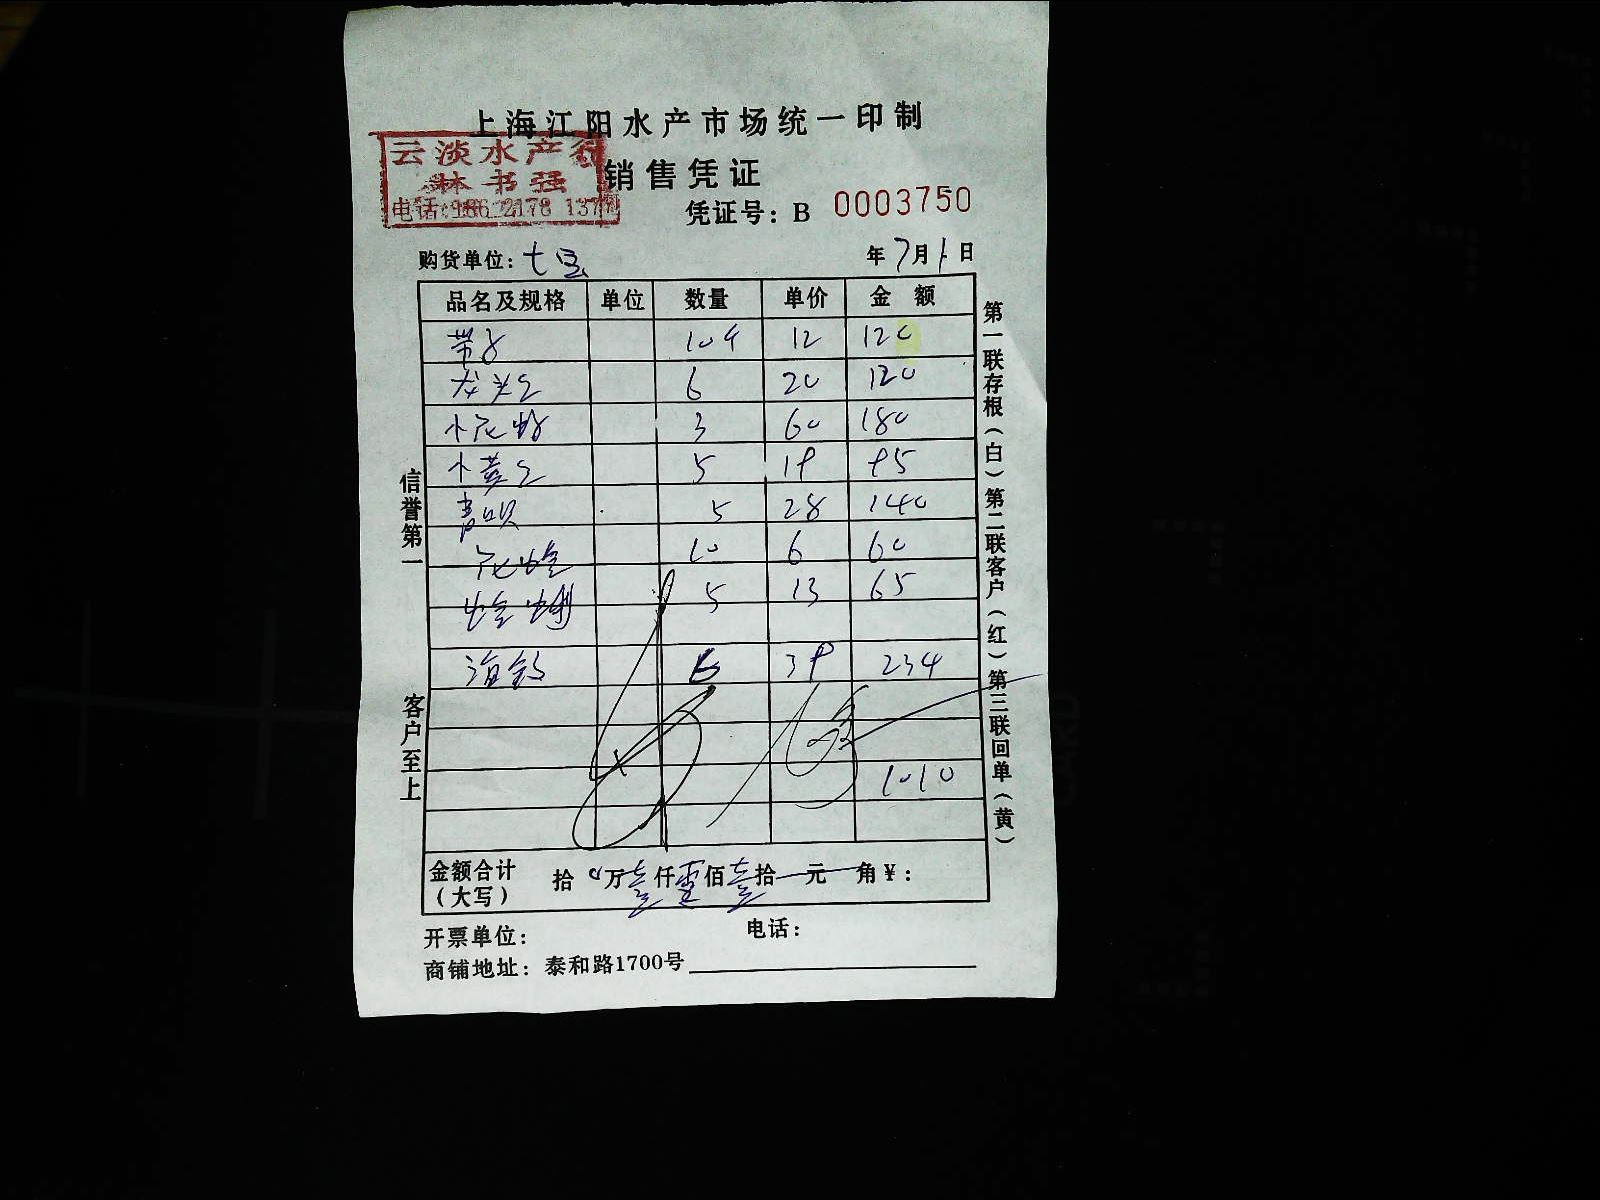 上海江阳水产市场统一印制
云淡水产行
林书强
销售凭证
凭证号: B 0003750
购货单位: 七宝
年7月1日
品名及规格 单位 数量 单价 金 额
带子 10个 12 120
龙头鱼 6 20 120
小花蛤 3 60 180
小黄鱼 5 19 95
青口贝 5 28 140
花蛤 10 6 60
蛤蜊 5 13 65
海 6 39 234
1010
金额合计(大写) 拾0万壹仟零佰壹拾 元 角¥:
开票单位: 电话:
商铺地址: 泰和路1700号
信誉第一
客户至上
第一联存根(白)第二联客户(红)第三联回单(黄)